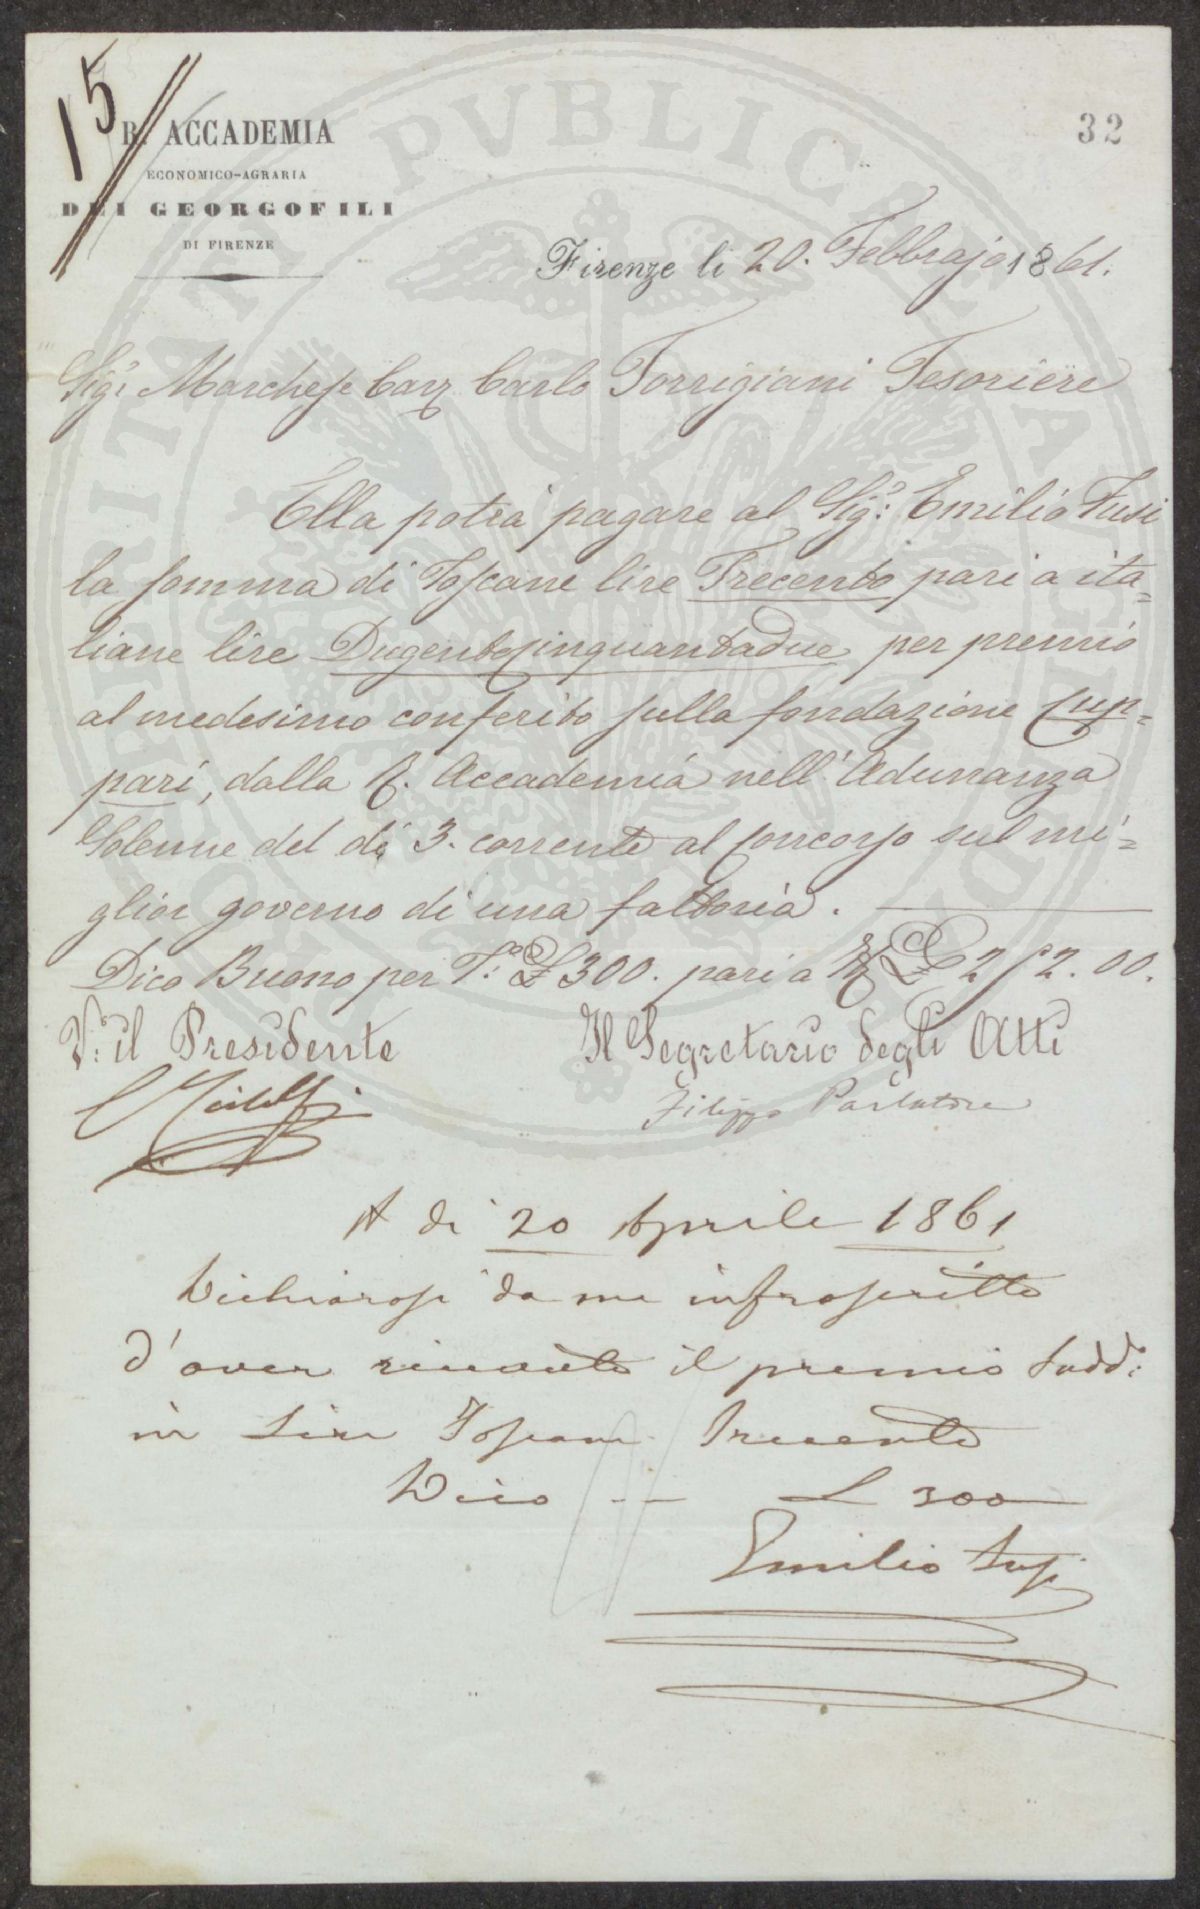 15
32
R. ACCADEMIA
ECONOMICO-AGRARIA
DEI GEORGOFILI
DI FIRENZE
Firenze li 20. Febbrajo 1861.
Sigr. Marchese Cav. Carlo Torrigiani Tesoriere
Ella potrà pagare al Sigr: Emilio Fusi
la somma di Toscane lire Trecento pari a ita=
liane lire Dugentocinquantadue per premio
al medesimo conferito sulla fondazione Cup=
pari, dalla R. Accademia nell'Adunanza
Solenne del dì 3. corrente al Concorso sul mi=
glior governo di una fattoria.
Dico Buono per T.e £ 300. pari a £ 252.00.
V: il Presidente
Il Segretario degli Atti
C Ridolfi
Filippo Parlatore
A dì 20 Aprile 1861
Dichiarasi da me infrascritto
d'aver ricevuto il premio sudd:
in Lire Toscane Trecento
Dico — L 300
Emilio Fusi